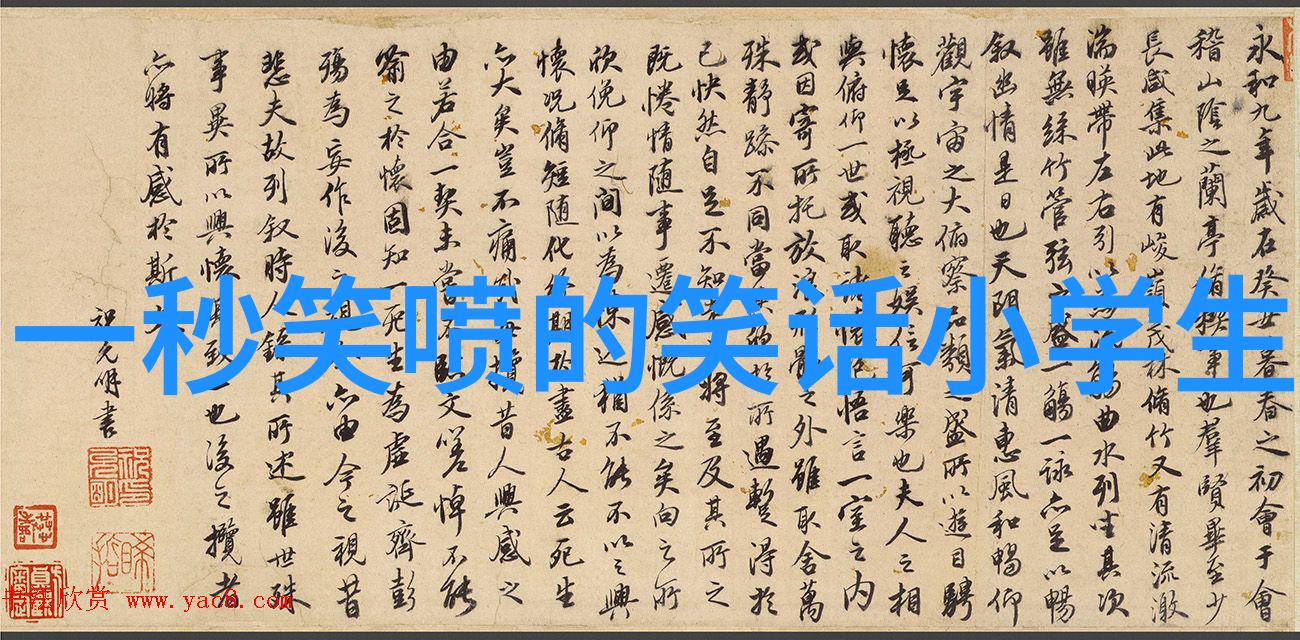 一秒笑喷的笑话小学生
永和九年歲在癸丑暮春之初會于會
稽山陰之蘭亭脩禊事也羣賢畢至少
長咸集此地有峻嶺茂林脩竹又有清流激
湍暎帶左右引以流觴曲水列坐其次
雖無絲竹管弦之盛一觴一詠亦足以暢
叙幽情是日也天朗氣清惠風和暢仰
觀宇宙之大俯察品類之盛所以遊目騁
懷足以極視聽之娛信可樂也夫人之相
與俯仰一世或取諸懷悟言一室之內
或因寄所托放浪形骸之外雖取舍萬
殊靜躁不同當其於所遇暫得於
已快然自足不知將至及其所之
既惓情随事遷感慨係之矣向之所
欣俛仰之間以為陳迹猶不能不以之興
懷況脩短随化期於盡古人云死生
亦大矣豈不痛攬昔人興感之
由若合一契未嘗不臨文嗟悼不能
喻之於懷固知一死生為虛誕齊彭
殤為妄作後之視亦由今之視昔
悲夫故列叙時人錄其所述雖世殊
事異所以興懷其致一也後之攬者
亦將有感於斯
祝允明書
书法欣赏 www.yac8.com